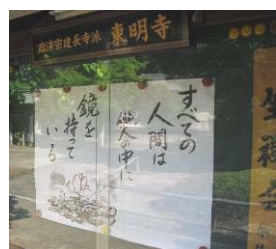 臨済宗建長寺派 東明寺
すべての
人間は
他人の中に
鏡を
持って
いる